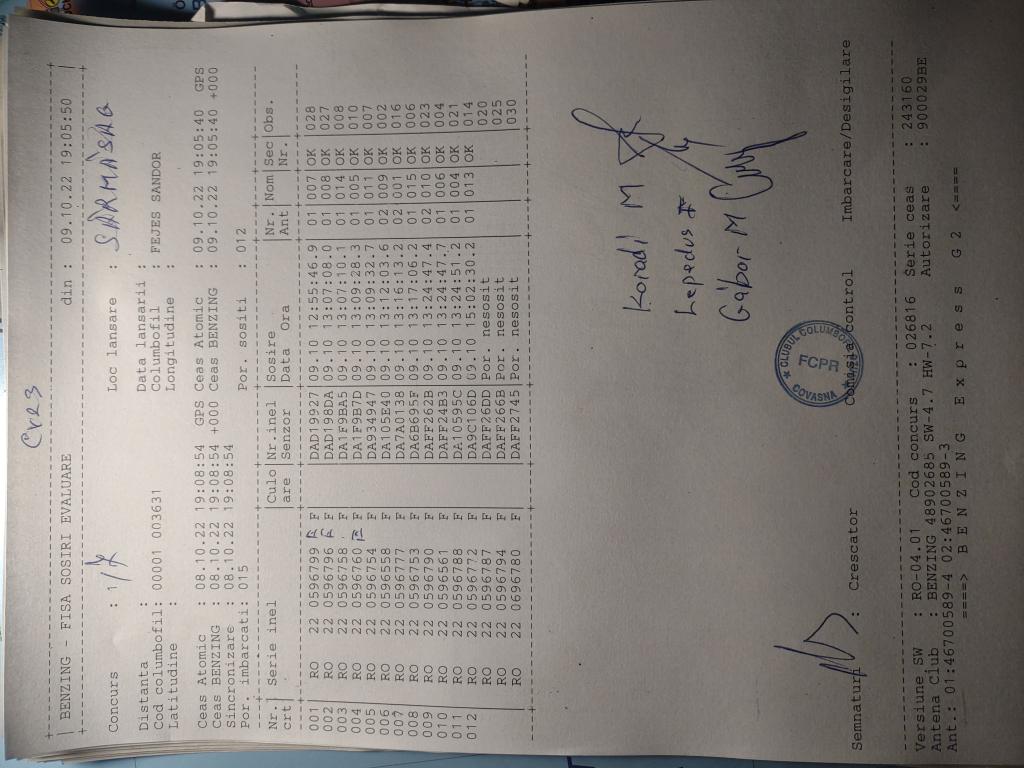 Cr23
BENZING - FISA SOSIRI EVALUARE din : 09.10.22 19:05:50
Concurs : Loc lansare : SĂRMĂȘAG
Distanta : Data lansarii :
Cod columbofil: 00001 003631 Columbofil : FEJES SANDOR
Latitudine : Longitudine :
Ceas Atomic : 08.10.22 19:08:54 GPS Ceas Atomic : 09.10.22 19:05:40 GPS
Ceas BENZING : 08.10.22 19:08:54 +000 Ceas BENZING : 09.10.22 19:05:40 +000
Sincronizare : 08.10.22 19:08:54
Por. imbarcati: 015 Por. sositi : 012
Nr. | Serie inel |Culo|Nr.inel |Sosire |Nr.|Nom|Sec|Obs.
crt | |are |Senzor |Data Ora |Ant| |Nr.|
001 RO 22 0596799 F DAD19927 09.10 12:55:46.9 01 007 OK 028
002 RO 22 0596796 F DAD198DA 09.10 13:07:08.0 01 008 OK 027
003 RO 22 0596758 F DA1F9BA5 09.10 13:07:10.1 01 014 OK 008
004 RO 22 0596760 F DA1F9B7D 09.10 13:09:28.3 01 005 OK 010
005 RO 22 0596754 F DA934947 09.10 13:09:32.7 01 011 OK 007
006 RO 22 0596558 F DA105E40 09.10 13:12:03.6 02 009 OK 002
007 RO 22 0596777 F DA7A0138 09.10 13:16:13.2 02 001 OK 016
008 RO 22 0596753 F DA6B695F 09.10 13:17:06.2 01 015 OK 006
009 RO 22 0596790 F DAFF262B 09.10 13:24:47.4 02 010 OK 023
010 RO 22 0596561 F DAFF24B3 09.10 13:24:47.7 01 006 OK 004
011 RO 22 0596788 F DA10595C 09.10 13:24:51.2 01 004 OK 021
012 RO 22 0596772 F DA9C106D 09.10 15:02:30.2 01 013 OK 014
RO 22 0596787 F DAFF26DD Por. nesosit 020
RO 22 0596794 F DAFF266B Por. nesosit 025
RO 22 0696780 F DAFF2745 Por. nesosit 030
Koradi M
Lepedus F
Gábor M
CLUBUL COLUMBOFIL
FCPR
COVASNA
Semnatura : Crescator Comisia control Imbarcare/Desigilare
Versiune SW : RO-04.01 Cod concurs : 026816 Serie ceas : 243160
Antena Club : BENZING 48902685 SW-4.7 HW-7.2 Autorizare : 900029BE
Ant.: 01:46700589-4 02:46700589-3
====> B E N Z I N G E x p r e s s G 2 <====